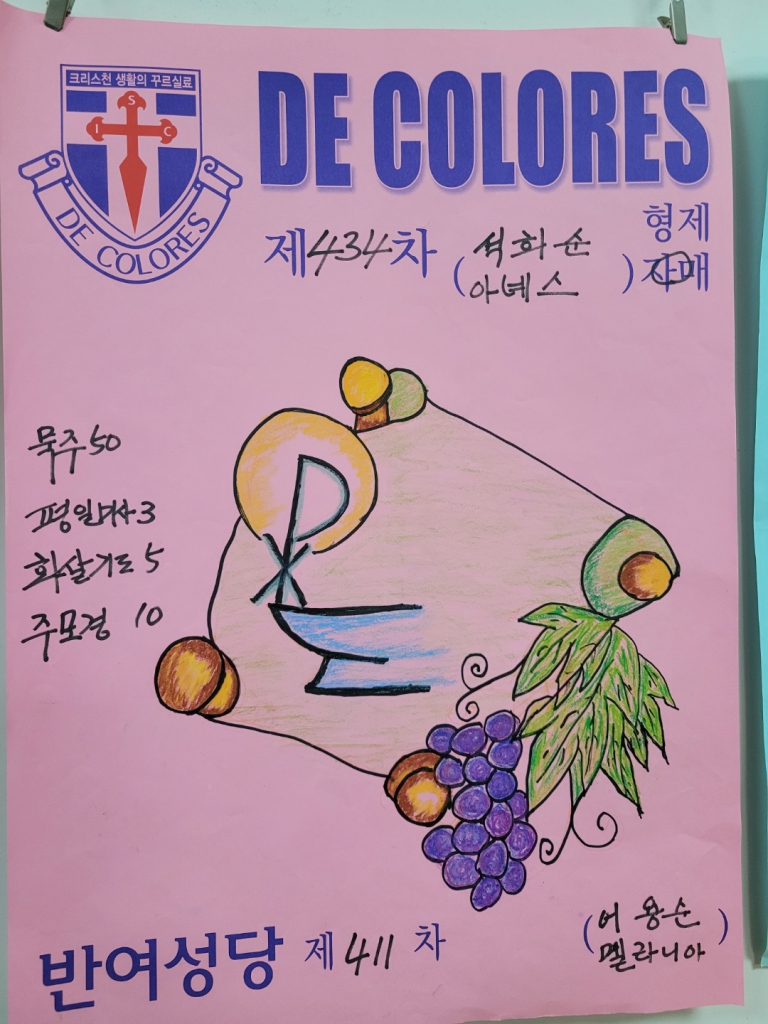 크리스천 생활의 꾸르실료
S
I C
DE COLORES
DE COLORES
제434차 (석화순 아녜스) 형제 자매
묵주 50
평일미사 3
화살기도 5
주모경 10
반여성당 제 411 차
(어용순 멜라니아)